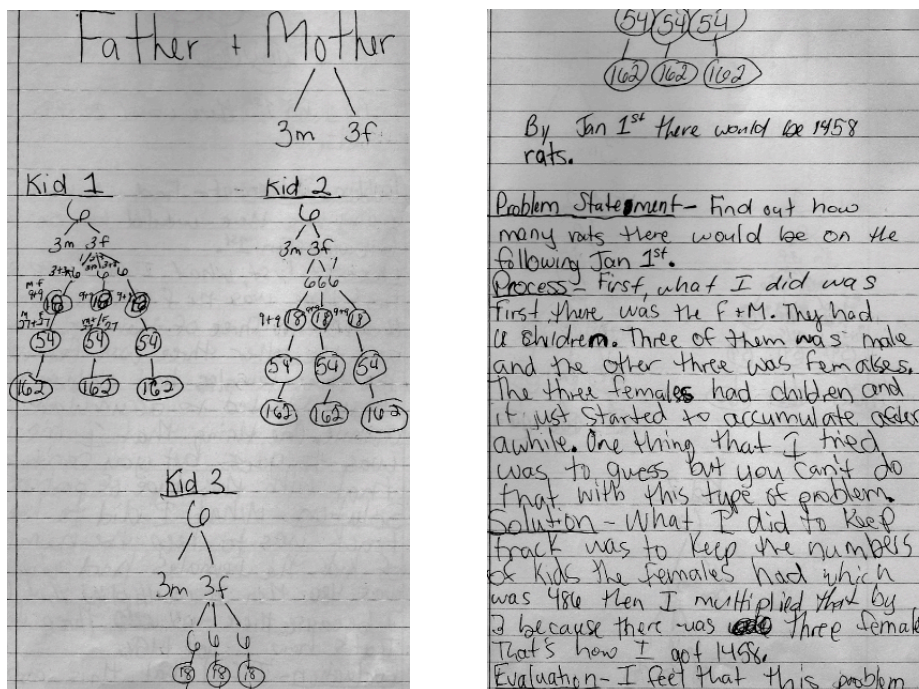 Father + Mother
3m 3f
Kid 1
6
3m 3f
6 6
9+9 9+9
27+27
54 54 54
162 162 162
Kid 2
6
3m 3f
6 6 6
9+9 18 18 18
54 54 54
162 162 162
Kid 3
6
3m 3f
6 6 6
18 18 18
54 54 54
162 162 162
By Jan 1st there would be 1458
rats.
Problem Statement - Find out how
many rats there would be on the
following Jan 1st.
Process - First, what I did was
first there was the F+M. They had
children. Three of them was male
and the other three was femalses.
The three females had children and
it just started to accumulate after
awhile. One thing that I tried
was to guess but you can't do
that with this type of problem.
Solution - What I did to keep
track was to keep the numbers
of kids the females had which
was 486 then I multiplied that by
3 because there was three female
That's how I got 1458.
Evaluation - I feel that this problem